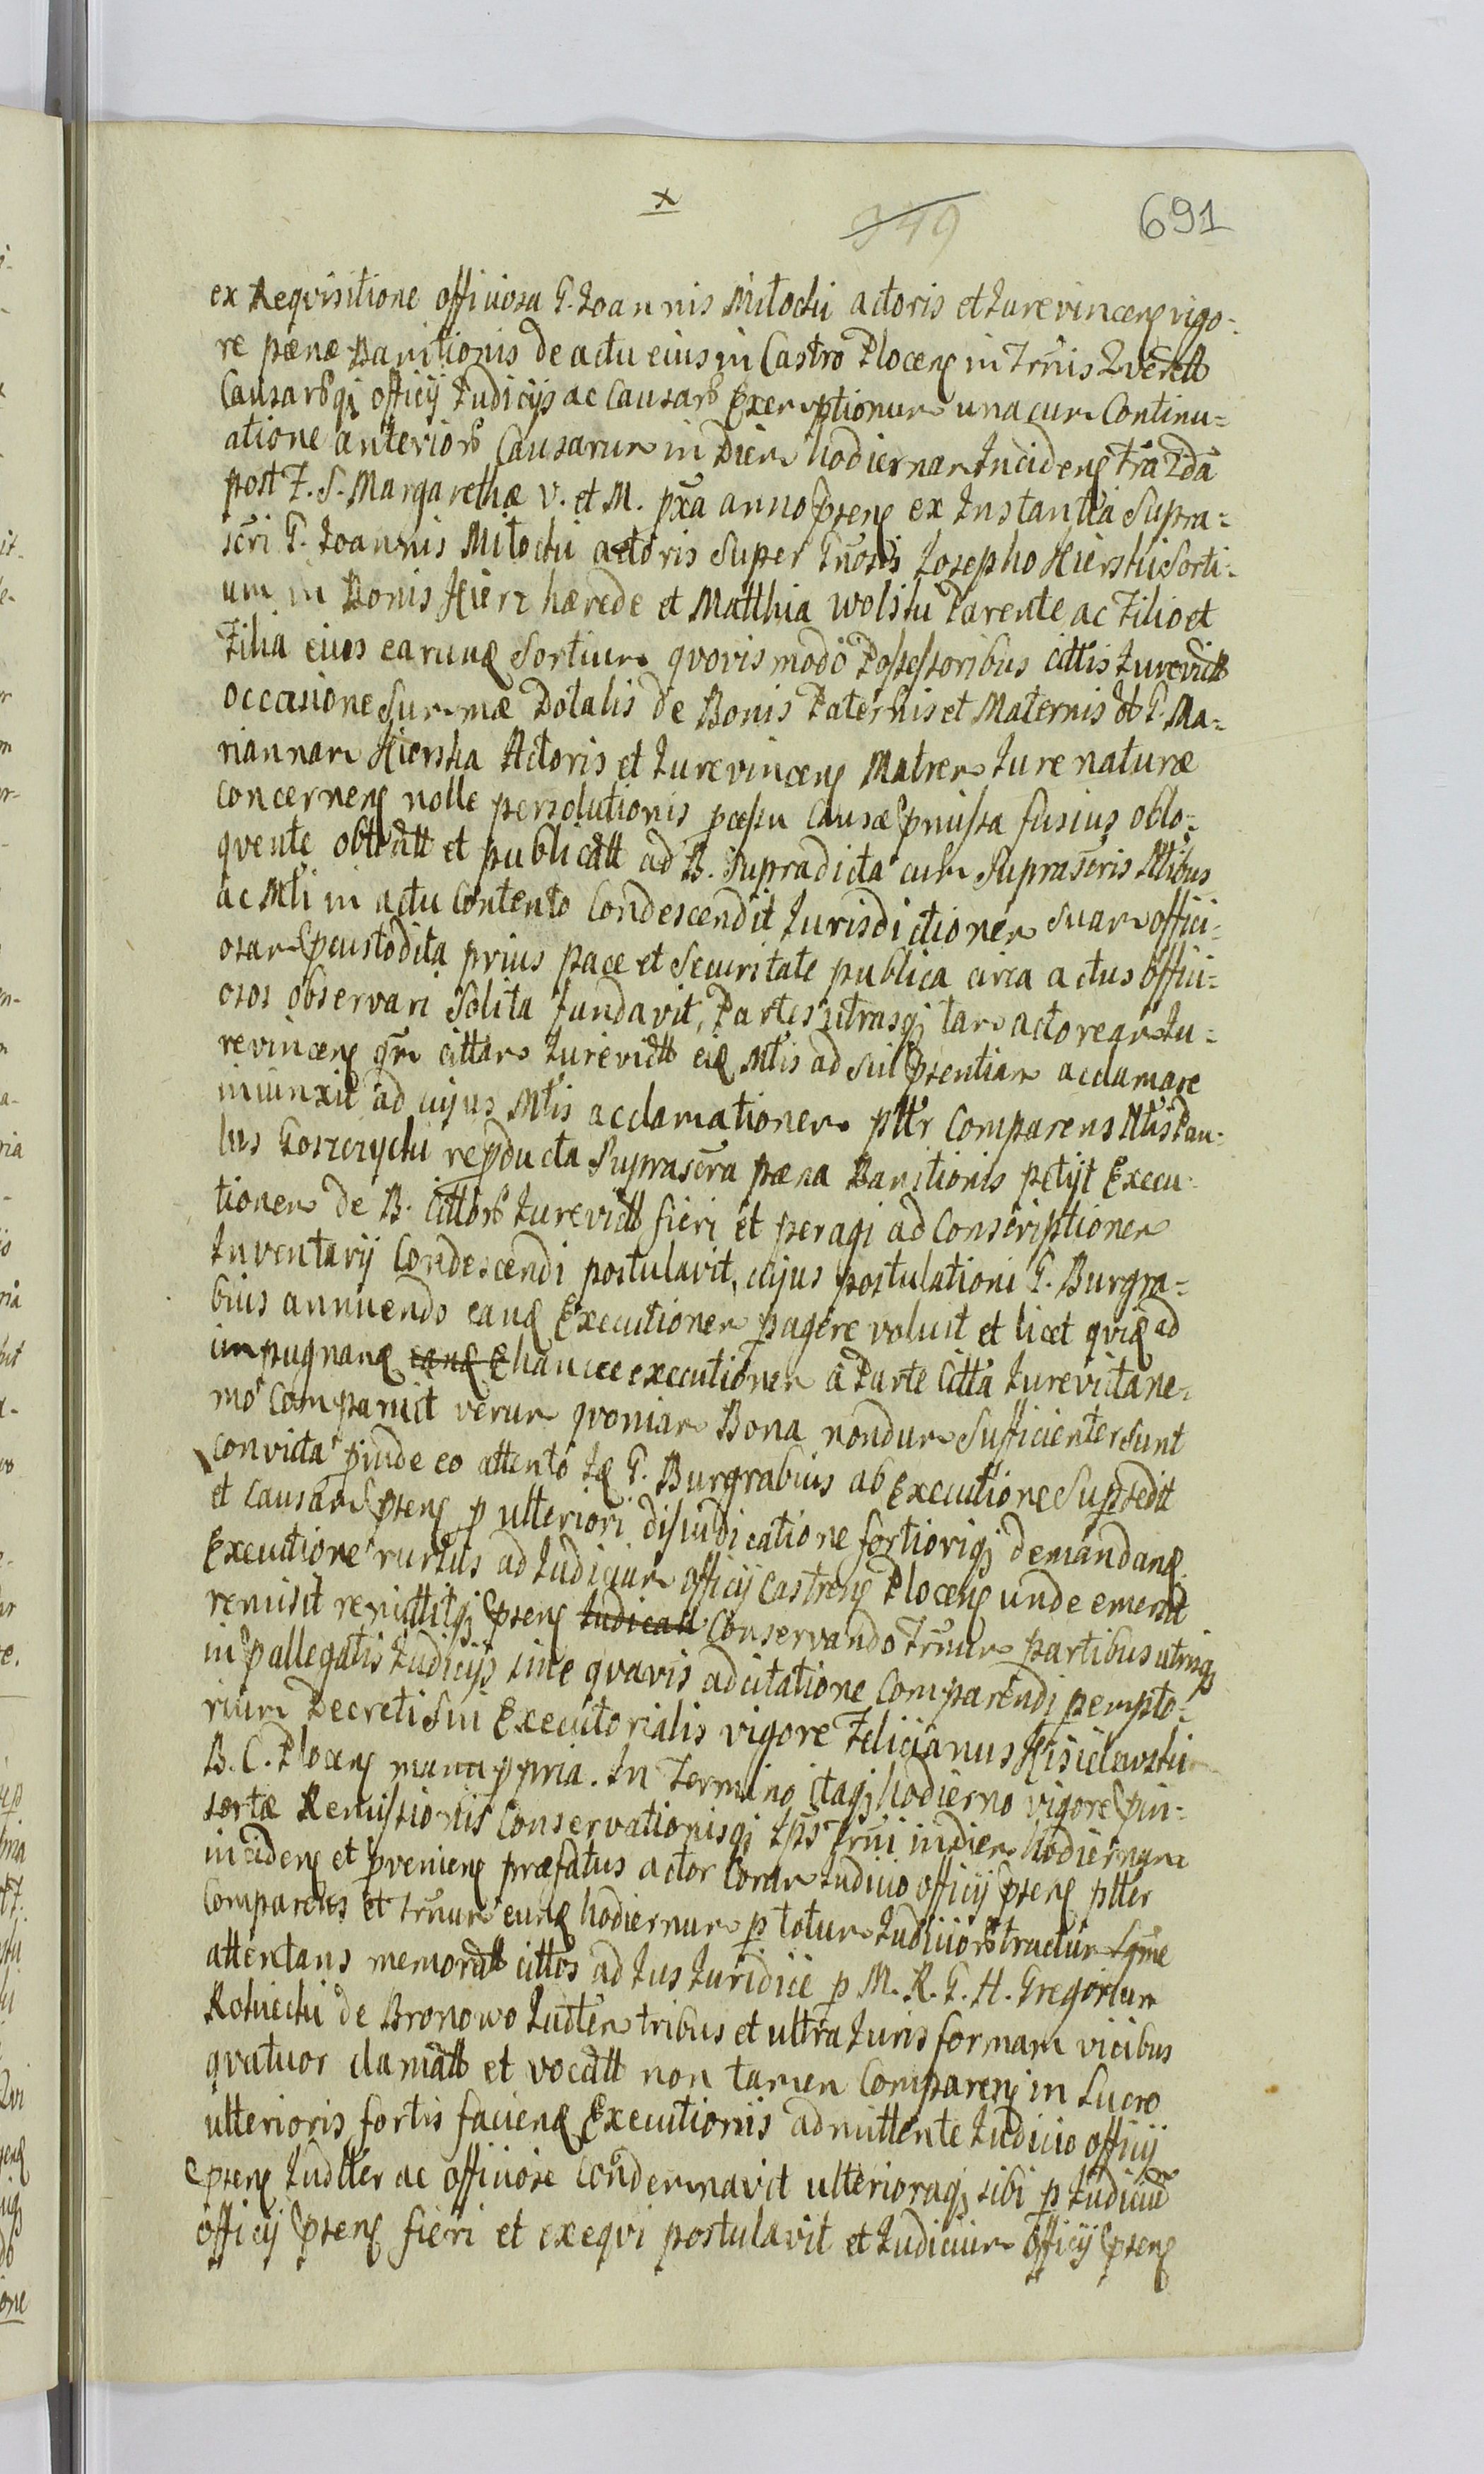 x
949
691
ex Reqvisitione officiosa G. Joannis Mitocki actoris et Jurevincen͠ vigo=
re pænæ Banitionis de actu eius in Castro Plocen͠ in Tr̄nis Qverell͠
Causarūqȝ officij Judicijs ac Causarū Exemptionum una cum Continu=
atione anteriorū Causarum in Diem hodiernam Inciden͠ fr̄a 2dā
post F. S. Margarethæ V. et M. px̄a anno p̄sen͠ ex Instantia Supra=
scr̄i G. Joannis Mitocki actoris Super Gn̄osis Josepho Kierski Sorti=
um in Bonis Kierz hærede et Matthia Wolski Parente ac Filio et
Filia eius earund͠ Sortium qvovis modo Possessoribus citt̄is Jurevict͠
occasione Summæ Dotalis de Bonis Paternis et Maternis olī G. Ma=
riannam Kierska Actoris et Jurevincen͠ Matrem Jure naturæ
Concernen͠ nolle persolutionis p̄cessu Causæ p̄missa fusius oblo=
qvente obtent͠ et publicat͠ ad B. Supradicta cum Suprascr̄is Nt̄ibus
ac Mt̄i in actu Contento Condescendit Jurisdictionem suam offici=
osam p̄custodita prius pace et Securitate publica circa actus offici=
osos observari Solita fundavit, Partes utrasqȝ tam actoream Ju=
revincen͠ qm̄ cittam Jurevict͠ eid͠ Mt̄is ad sui p̄sentiam acclamare
iniunxit ad cujus Mt̄is acclamationem pltr Comparens Nt̄is Pau=
lus Goszczycki rep̄ducta Suprascr̄a pæna Banitionis petijt Execu=
tionem de B. Citt̄orū Jurevict͠ fieri et peragi ad Conscriptionem
Inventarij Condescendi postulavit, cujus postulationi G. Burgra=
bius annuendo eand͠ Executionem p̄agere voluit et licet qvid͠ ad
impugnand͠ eand͠ E hancce executionem a Parte Citta Jurevicta ne=
mo Comparuit verum qvoniam Bona nondum Sufficienter sunt
convicta p̄inde eo attento Id͠ G. Burgrabius ab Executione Sup̄sedit
et Causam p̄sen͠ p̄ ulteriori disjudicatione fortioriqȝ demandand͠
Executione rursus ad Judicium officij Castren͠ Plocen͠ unde emerāt
remisit remittitqȝ p̄sen͠ Judicali Conservando Tr̄num partibus utrisqȝ
in p̄allegatis Judicijs sine qvavis adcitatione Comparendi p̄empto=
rium Decreti Sui Executorialis vigore Felicianus Kisielewski
B. C. Plocen͠ manu p̄pria. In Termino itaqȝ hodierno vigore p̄in=
sertæ Remissionis Conservationisqȝ Ips̄ Tr̄ni in diem hodiernam
inciden͠ et p̄venien͠ præfatus actor Coram Judicio officij p̄sen͠ plter
Comparens et Tr̄num eund͠ hodiernum p̄ totum Judiciorū tractum Lgme
attentans memorat͠ cittos ad Jus Juridice p̄ M. R. G. H. Gregorium
Rokicki de Bronowo Judtem tribus et ultra Juris formam vicibus
qvatuor clamat͠ et vocat͠ non tamen Comparen͠ in Lucro
ulterioris fortis faciend͠ Executionis admittente Judicio officij
p̄sen͠ Judlter ac officiose Condemnavit ulterioraqȝ sibi p̄ Judiciū
officij p̄sen͠ fieri et exeqvi postulavit et Judicium officij p̄sen͠